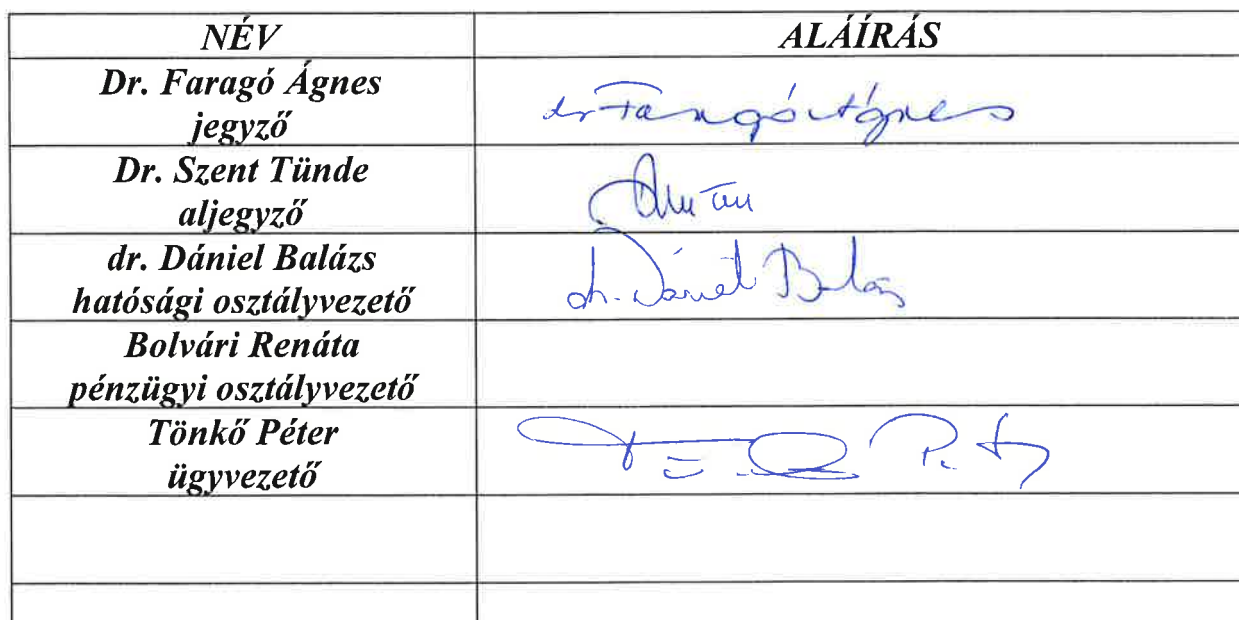 NÉV ALÁÍRÁS
Dr. Faragó Ágnes
jegyző
dr Faragó Ágnes
Dr. Szent Tünde
aljegyző
dr. Dániel Balázs
hatósági osztályvezető
dr. Dániel Balázs
Bolvári Renáta
pénzügyi osztályvezető
Tönkő Péter
ügyvezető